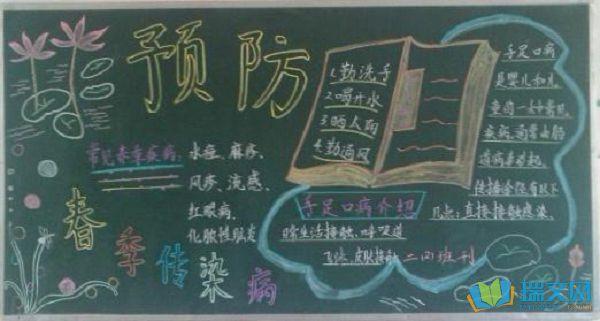 预防
春季传染病
常见春季疾病
水痘、麻疹、
风疹、流感、
红眼病、
化脓性脑炎
1.勤洗手
2.喝开水
3.晒太阳
4.勤通风
手足口病
是婴儿和儿
童的一种常见
疾病,
道病毒引起,
传播途径有以下
几点:直接接触感染、
生活接触、呼吸道
飞沫、皮肤接触
手足口病介绍
二(四)班刊
瑞文网